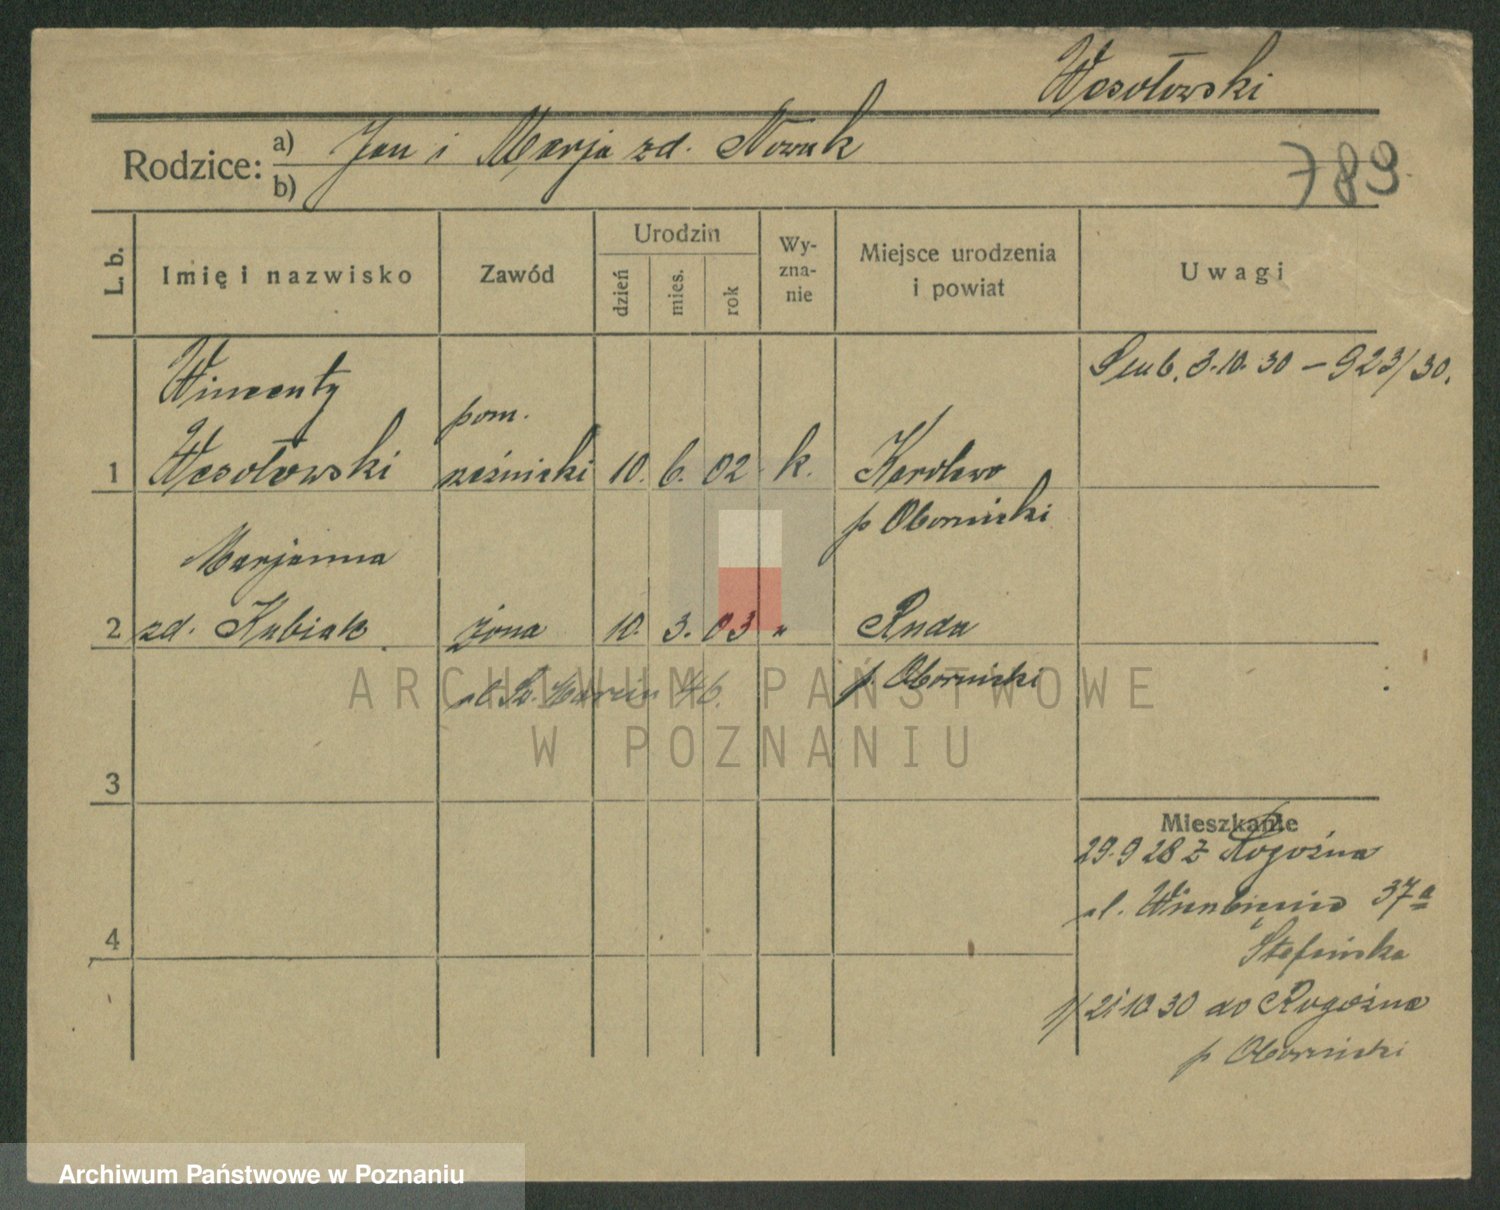 Wesołowski
Rodzice: a) Jan i Marja zd. Nowak
b)
789
L. b.
Imię i nazwisko
Zawód
Urodzin
dzień
mies.
rok
Wy-
zna-
nie
Miejsce urodzenia
i powiat
Uwagi
Wincenty
pom.
Ślub. 3.10.30 – 923/30.
1 Wesołowski rzeźnicki 10. 6. 02 k. Karolewo
p Obornicki
Marjanna
2 zd. Kubiak żona 10. 3. 03 " Ruda
p. Obornicki
ul. Św. Marcin 46.
3
Mieszkanie
29.9 28 z Rogoźna
ul. 37a
4
21 10 30 do Rogoźna
p Obornicki
ARCHIWUM PAŃSTWOWE
W POZNANIU
Archiwum Państwowe w Poznaniu